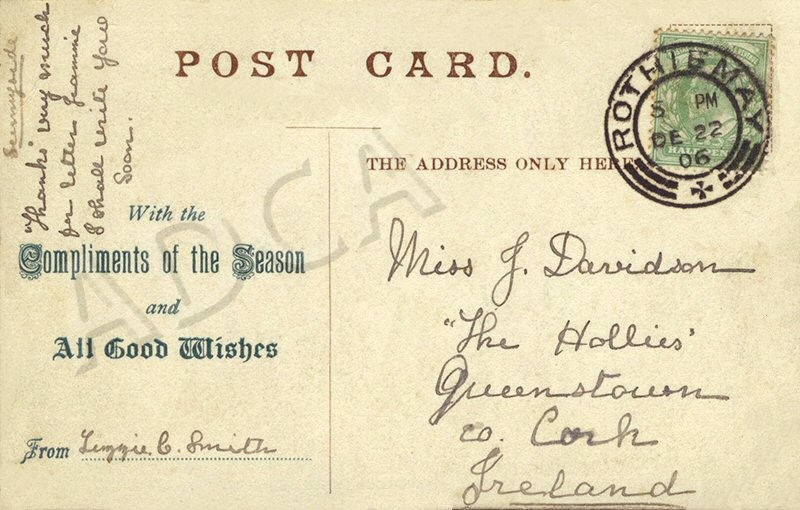 POST CARD.
Sunnyside
"Thanks" very much
for letter Jeannie
I shall write you
soon.
With the
Compliments of the Season
and
All Good Wishes
From Lizzie. C. Smith
THE ADDRESS ONLY HERE
ROTHIEMAY
5 PM
DE 22
06
HALF
Miss J. Davidson
"The Hollies"
Queenstown
co. Cork
Ireland
ADCA